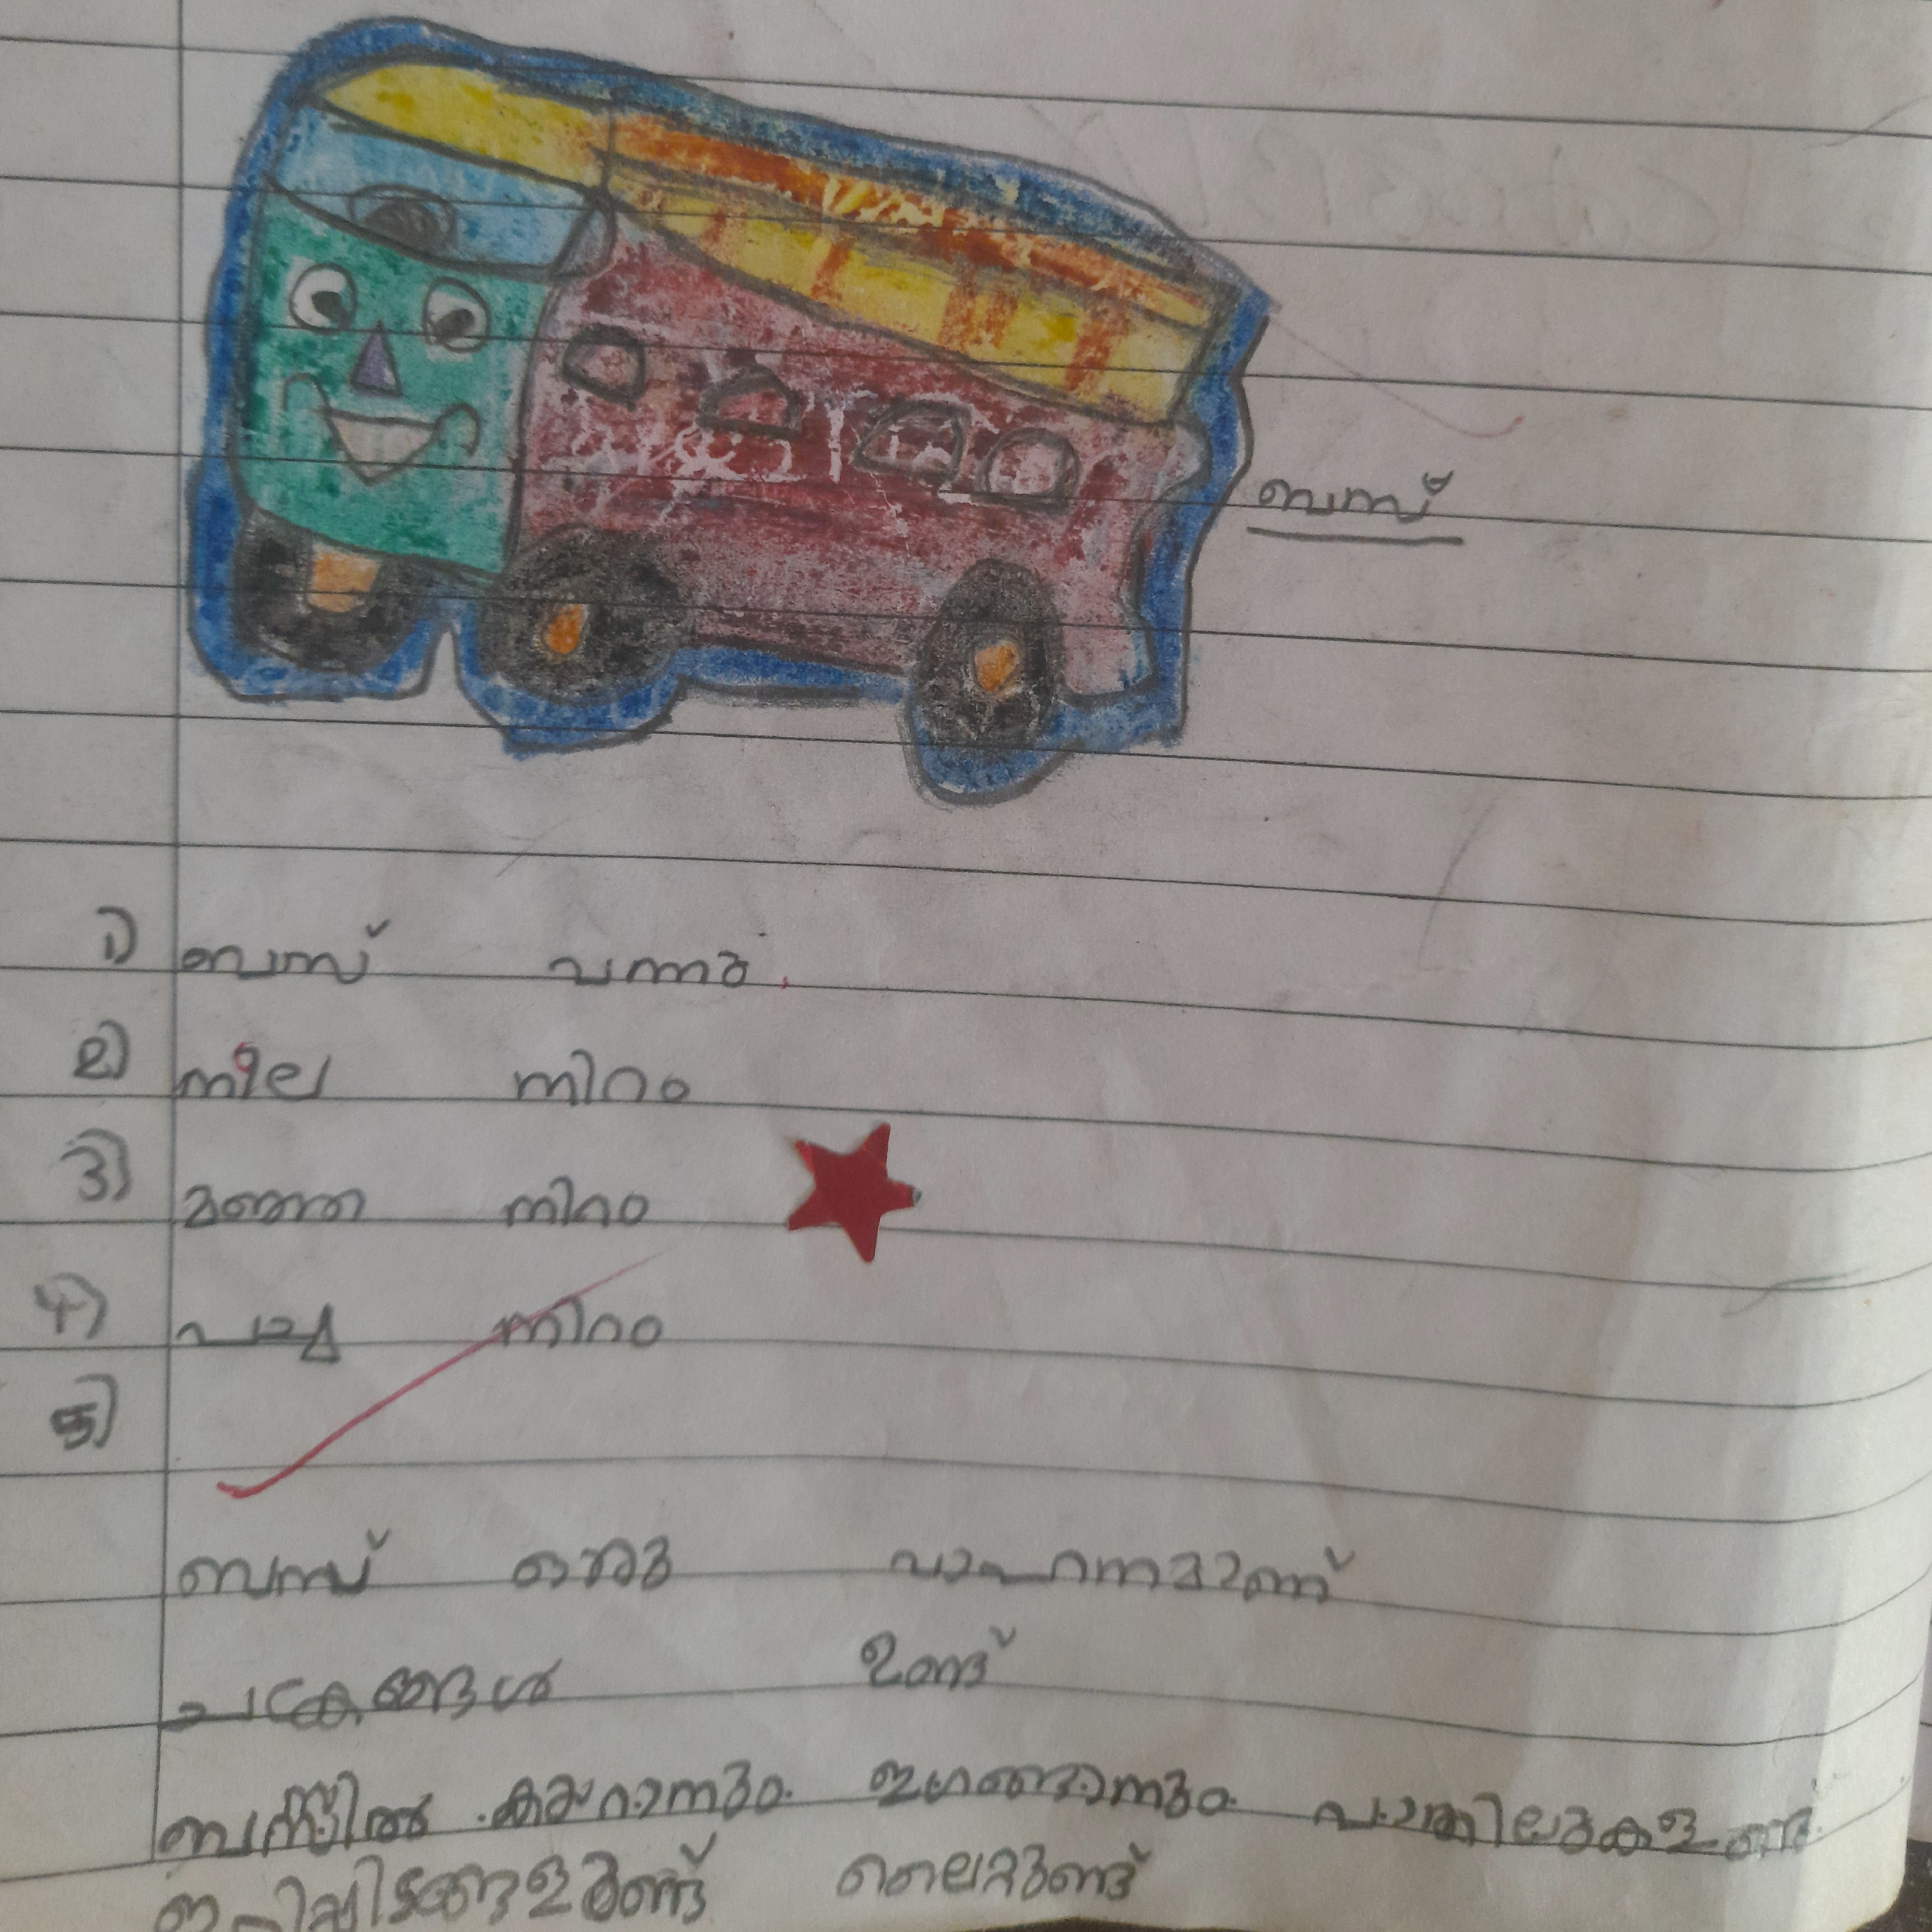 ബസ്
1) ബസ് വന്നു.
2) നീല നിറം
3) മഞ്ഞ നിറം
4) പച്ച നിറം
5)
ബസ് ഒരു വാഹനമാണ്
ചക്രങ്ങൾ ഉണ്ട്
ബസ്സിൽ കയറാനും ഇറങ്ങാനും വാതിലുകളുണ്ട്
ഇരിപ്പിടങ്ങളുണ്ട് ലൈറ്റുണ്ട്